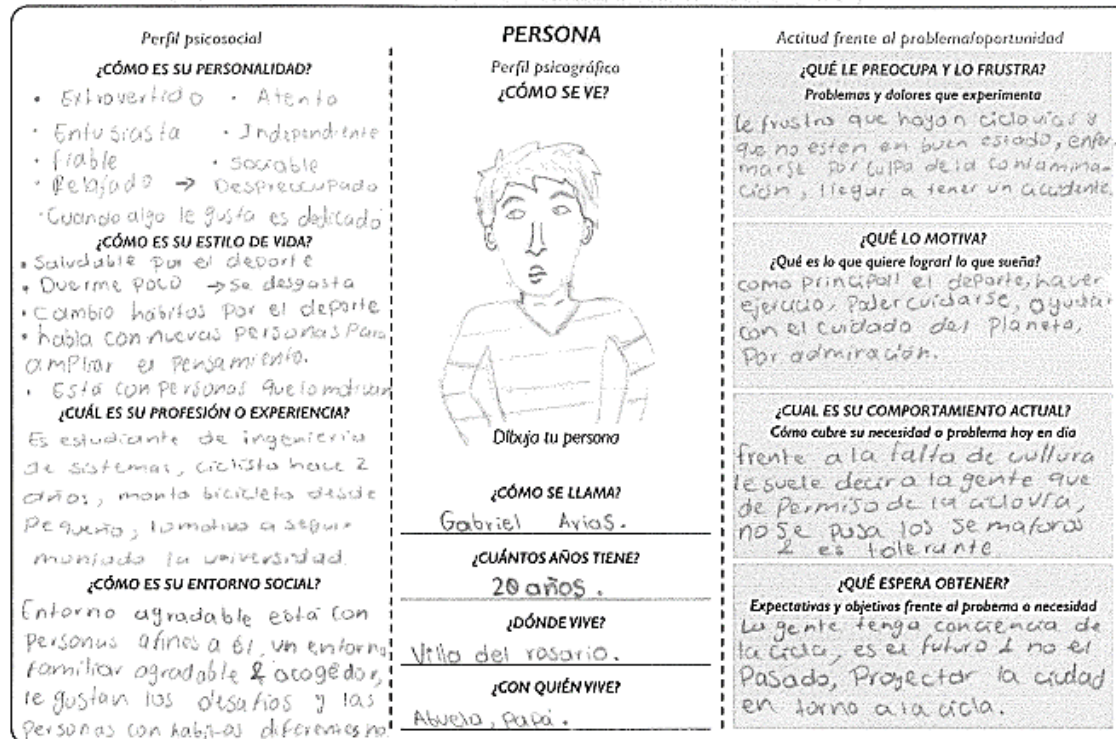 Perfil psicosocial
¿CÓMO ES SU PERSONALIDAD?
• Extrovertido • Atento
• Entusiasta • Independiente
• fiable • sociable
• Relajado → Despreocupado
• Cuando algo le gusta es dedicado
¿CÓMO ES SU ESTILO DE VIDA?
• Saludable por el deporte
• Duerme poco → se desgasta
• Cambio hábitos por el deporte
• habla con nuevas personas para
ampliar el pensamiento.
• Está con personas que lo motivan
¿CUÁL ES SU PROFESIÓN O EXPERIENCIA?
Es estudiante de ingenieria
de sistemas, ciclista hace 2
años, monta bicicleta desde
pequeño, lo motivo a seguir
montado la universidad.
¿CÓMO ES SU ENTORNO SOCIAL?
Entorno agradable está con
personas afines a él, un entorno
familiar agradable & acogedor,
le gustan los desafios y las
personas con habitos diferentes no
PERSONA
Perfil psicográfico
¿CÓMO SE VE?
Dibuja tu persona
¿CÓMO SE LLAMA?
Gabriel Arias.
¿CUÁNTOS AÑOS TIENE?
20 años.
¿DÓNDE VIVE?
Villa del rosario.
¿CON QUIÉN VIVE?
Abuela, papá.
Actitud frente al problema/oportunidad
¿QUÉ LE PREOCUPA Y LO FRUSTRA?
Problemas y dolores que experimenta
le frustra que hayan ciclovias y
que no esten en buen estado, enfer-
marse por culpa de la contamina-
ción, llegar a tener un accidente.
¿QUÉ LO MOTIVA?
¿Qué es lo que quiere lograr/ lo que sueña?
como principal el deporte, haver
ejercicio, poder cuidarse, ayudar
con el cuidado del planeta,
por admiración.
¿CUAL ES SU COMPORTAMIENTO ACTUAL?
Cómo cubre su necesidad o problema hoy en día
frente a la falta de cultura
le suele decir a la gente que
de permiso de la ciclovía,
no se pasa los semaforos
& es tolerante
¿QUÉ ESPERA OBTENER?
Expectativas y objetivos frente al probema o necesidad
La gente tenga conciencia de
la cicla, es el futuro & no el
Pasado, Proyectar la ciudad
en torno a la cicla.